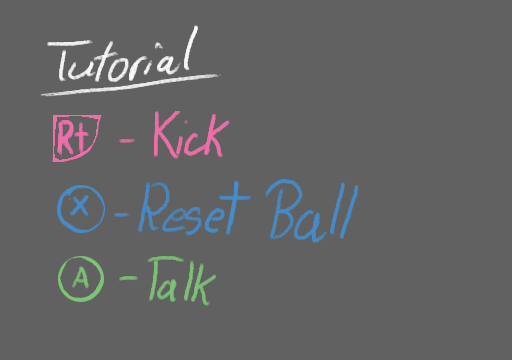 Tutorial
Rt - Kick
X - Reset Ball
A - Talk